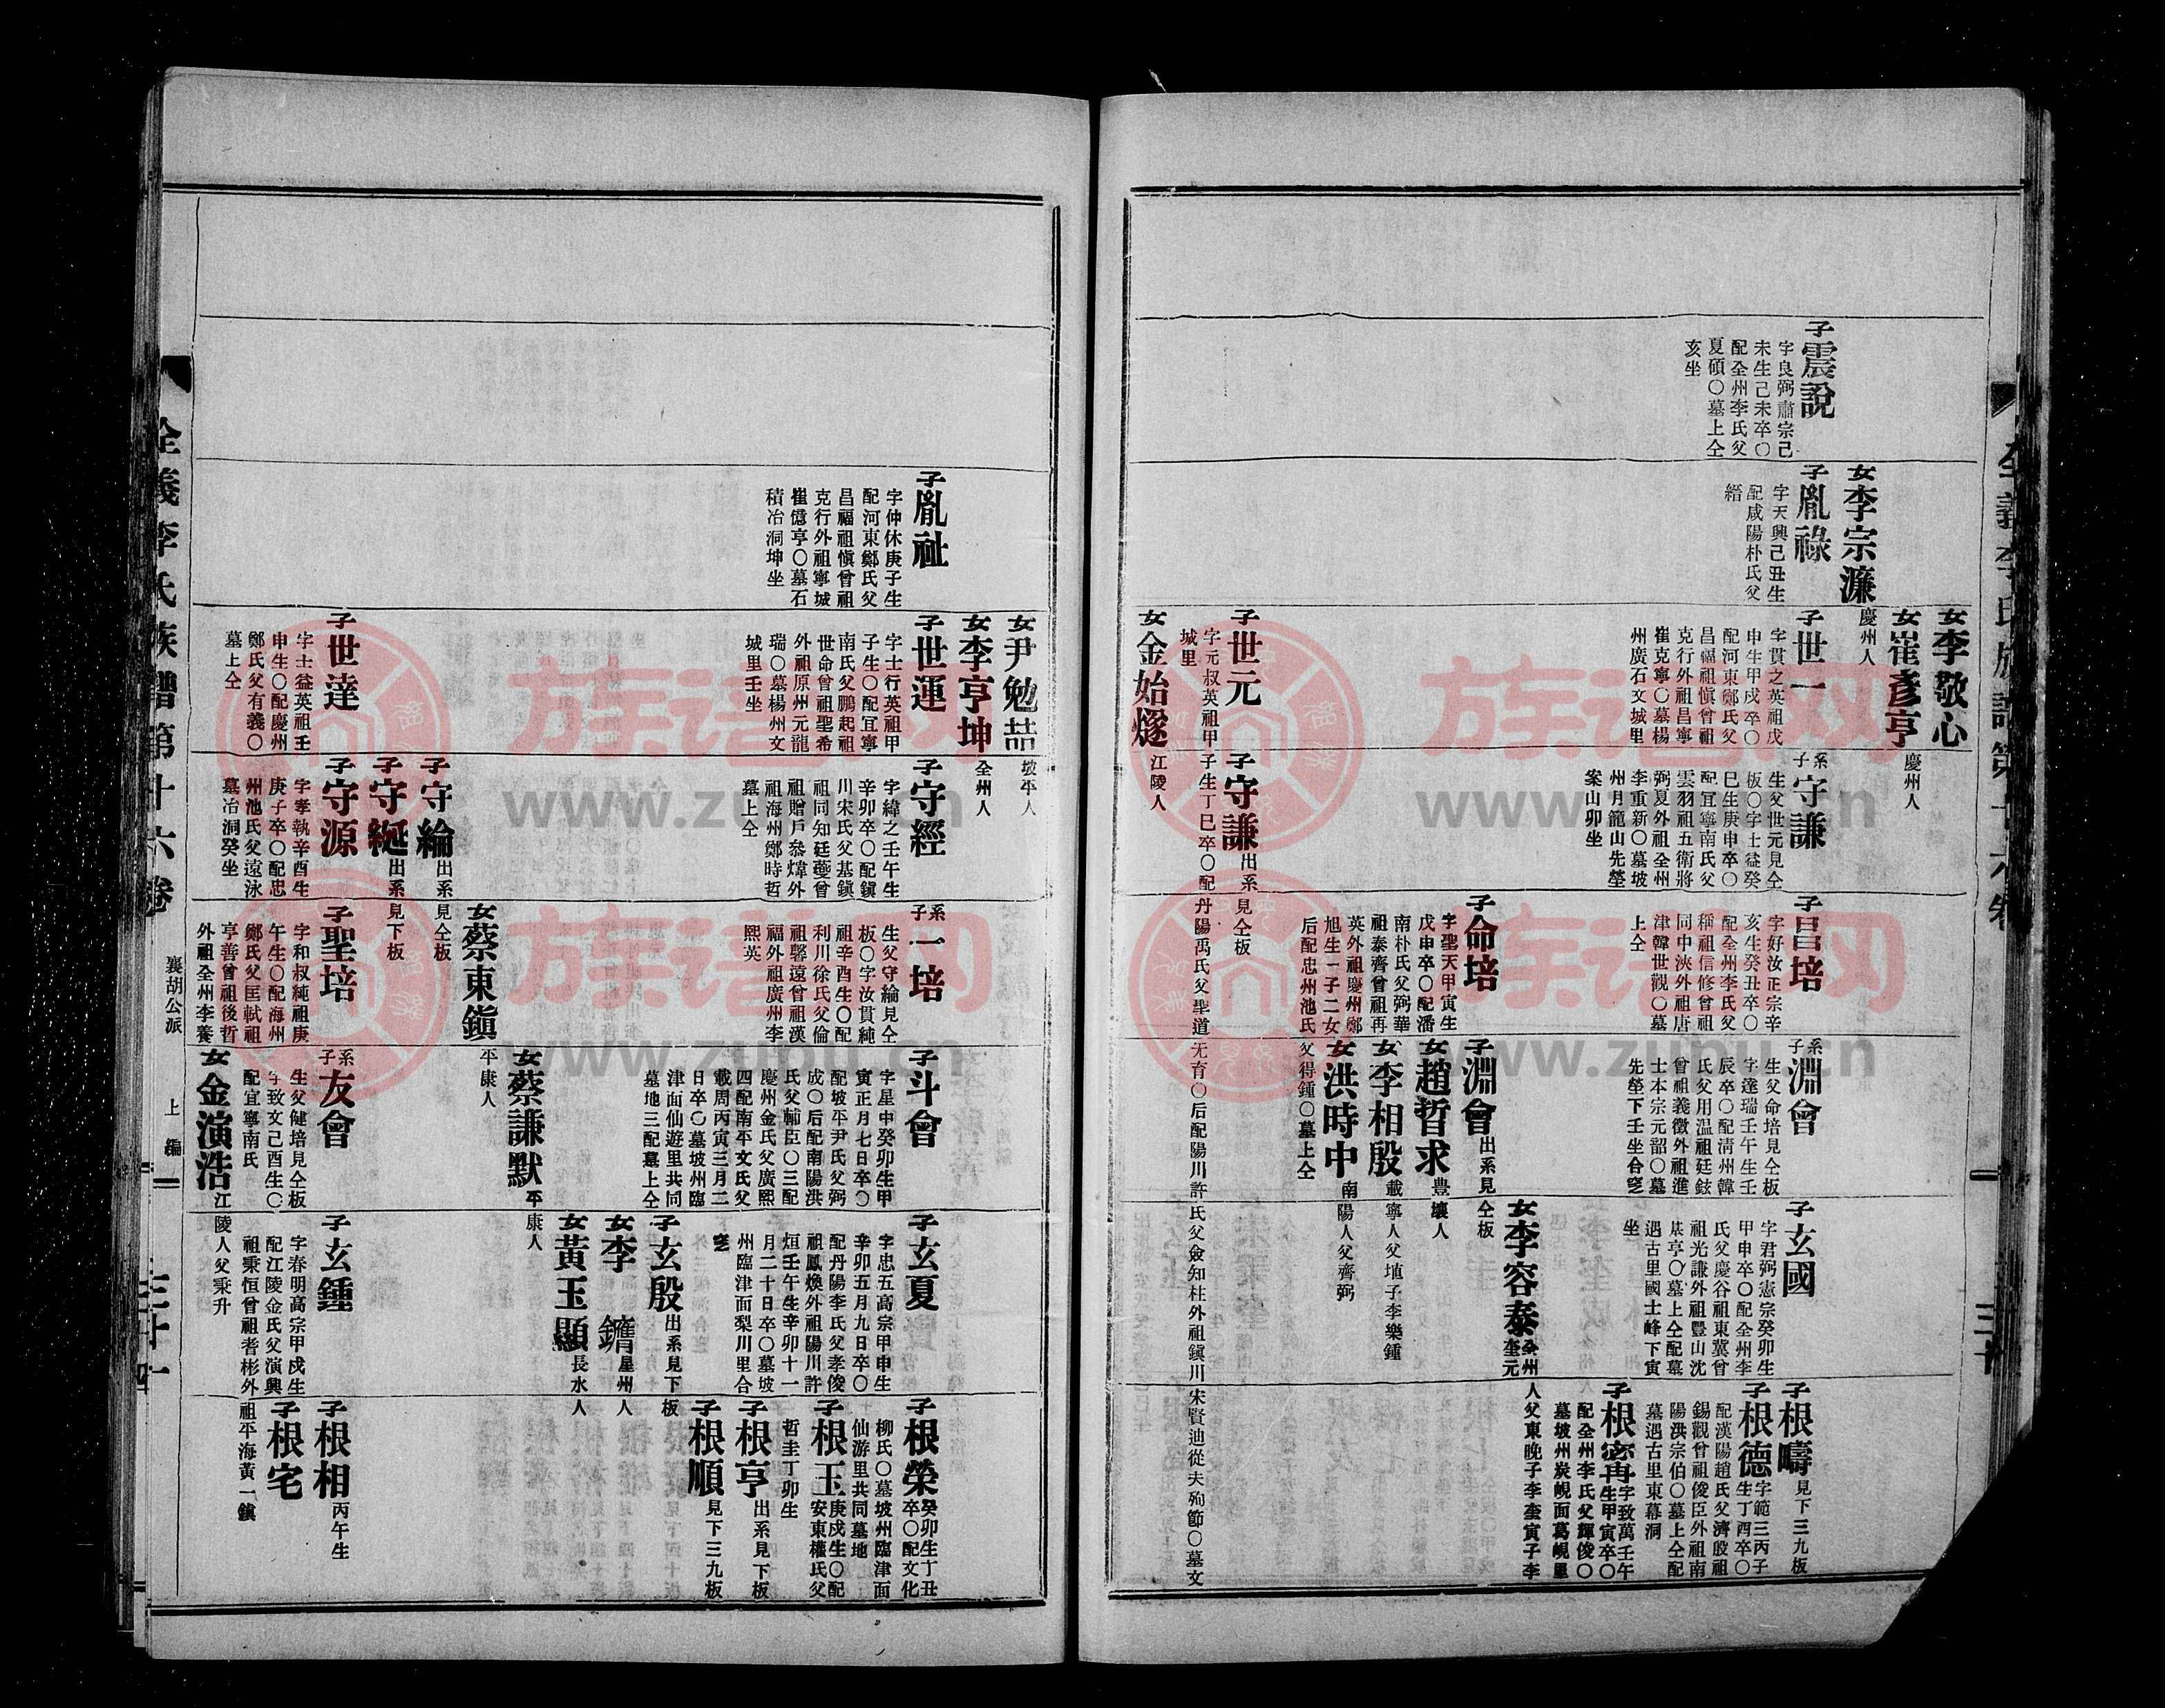 全義李氏族譜第十六卷
子震說
字良弼肅宗己
未生己未卒〇
配全州李氏父
夏碩〇墓上仝
亥坐
女李宗濂
慶州人
子胤祿
字天興己丑生
配咸陽朴氏父
縉
女李敬心
女崔彥亨
慶州人
子世一
字貫之英祖戊
申生甲戌卒〇
配河東鄭氏父
昌福祖愼曾祖
克行外祖昌寧
崔克寧〇墓楊
州廣石文城里
子世元
字元叔英祖甲
子生丁巳卒〇配
丹陽禹氏父聖道
无育〇后配陽川許
氏父僉知柱外祖鎭川
宋賢迪從夫殉節〇墓文
城里
女金始燧
江陵人
系子守謙
生父世元見仝
板〇字士益癸
巳生庚申卒〇
配宜寧南氏父
雲羽祖五衛將
弼夏外祖全州
李重新〇墓坡
州月籠山先塋
案山卯坐
子守謙
出系見仝板
子昌培
字好汝正宗辛
亥生癸丑卒〇
配全州李氏父
稱祖信修曾祖
同中浹外祖唐
津韓世觀〇墓
上仝
子命培
字聖天甲寅生
戊申卒〇配潘
南朴氏父弼華
祖泰齊曾祖再
英外祖慶州鄭
旭生一子二女
后配忠州池氏
父得鍾〇墓上仝
系子淵會
生父命培見仝板
字蓬瑞壬午生壬
辰卒〇配清州韓
氏父用溫祖廷鉉
曾祖義徵外祖進
士本宗元韶〇墓
先塋下壬坐合窆
子淵會
出系見仝板
女趙哲求
豊壤人
女李相殷
載寧人父埴子李樂鍾
女洪時中
南陽人父齊弼
子玄國
字君弼憲宗癸卯生
甲申卒〇配全州李
氏父慶谷祖東冀曾
祖光謙外祖豐山沈
基亨〇墓上仝配墓
遇古里國士峰下寅
坐
女李容泰
全州人父東晚子李奎寅子李
奎元
子根疇
見下三九板
子根德
字範三丙子
生丁酉卒〇
配漢陽趙氏父濟殷祖
錫觀曾祖俊臣外祖南
陽洪宗伯〇墓上仝配
墓遇古里東幕洞
子根甯
字致萬壬午
生甲寅卒〇
配全州李氏父輝俊〇
墓坡州炭峴面葛峴里
子胤祉
字仲休庚子生
配河東鄭氏父
昌福祖愼曾祖
克行外祖寧城
崔億亨〇墓石
積冶洞坤坐
女尹勉喆
坡平人
女李亨坤
全州人
子世運
字士行英祖甲
子生〇配宜寧
南氏父鵬起祖
世命曾祖聖希
外祖原州元龍
瑞〇墓楊州文
城里壬坐
子世達
字士益英祖壬
申生〇配慶州
鄭氏父有義〇
墓上仝
子守經
字緯之壬午生
辛卯卒〇配鎭
川宋氏父基鎭
祖同知廷蘷曾
祖贈戶叅煒外
祖海州鄭時哲
墓上仝
子守綸
出系見仝板
子守綖
出系見下板
子守源
字孝執辛酉生
庚子卒〇配忠
州池氏父遠泳
墓冶洞癸坐
系子一培
生父守綸見仝
板〇字汝貫純
祖辛酉生〇配
利川徐氏父倫
祖馨遠曾祖漢
福外祖廣州李
熙英
女蔡東鎭
平康人
子聖培
字和叔純祖庚
午生〇配海州
鄭氏父匡軾祖
亨善曾祖後哲
外祖全州李養
子斗會
字星中癸卯生甲
寅正月七日卒〇
配坡平尹氏父弼
成〇后配南陽洪
氏父輔臣〇三配
慶州金氏父廣熙
四配南平文氏父
載周丙寅三月二
日卒〇墓坡州臨
津面仙遊里共同
墓地三配墓上仝
女蔡謙默
平康人
系子友會
生父健培見仝板
字致文己酉生〇
配宜寧南氏
女金演浩
江陵人父秉升
子玄夏
字忠五高宗甲申生
辛卯五月九日卒〇
配丹陽李氏父孝俊
祖鳳煥外祖陽川許
烜壬午生辛卯十一
月二十日卒〇墓坡
州臨津面梨川里合
窆
子玄殷
出系見下板
女李鑴
星州人
女黃玉顯
長水人
子玄鍾
字春明高宗甲戌生
配江陵金氏父演興
祖秉恒曾祖耆彬外
祖平海黃一鎭
子根榮
癸卯生丁丑
卒〇配文化
柳氏〇墓坡州臨津面
仙游里共同墓地
子根玉
庚戌生〇配
安東權氏父
哲圭丁卯生
子根亨
出系見下板
子根順
見下三九板
子根相
丙午生
子根宅
全義李氏族譜第十六卷
襄胡公派
上編